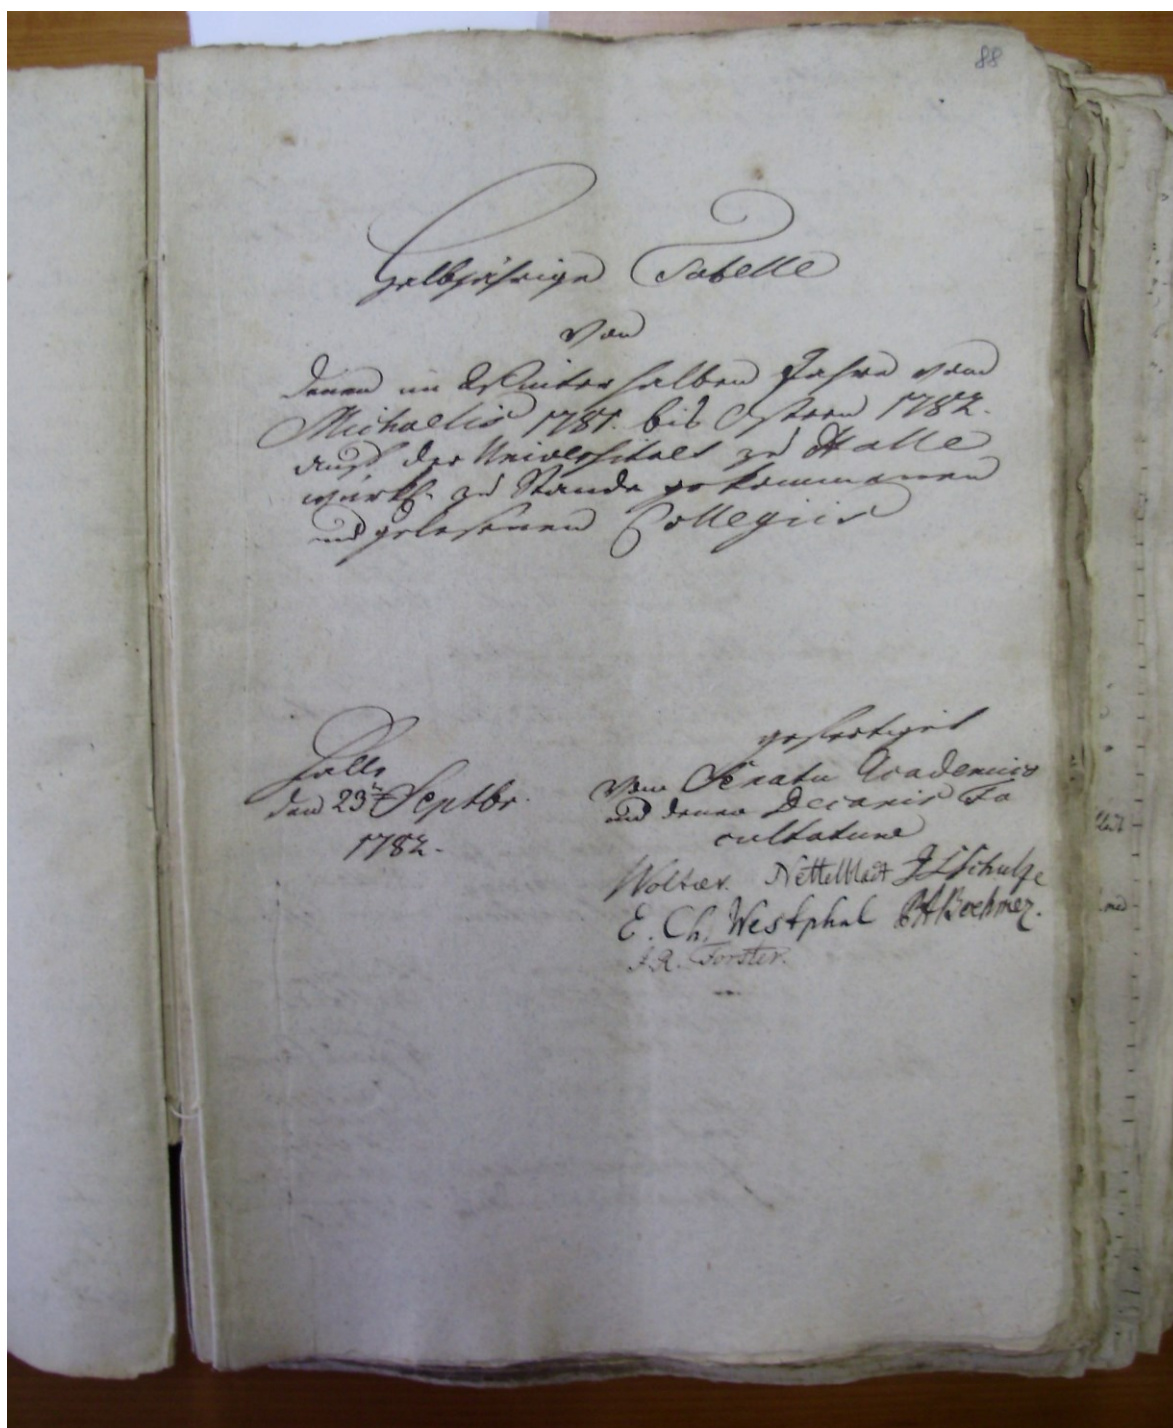 88
Halbjährige Tabelle
von
denen im Winter halben Jahre von
Michaelis 1781. bis Ostern 1782.
auf der Universitaet zu Halle
würkl. zu Stande gekommenen
und gelesenen Collegiis
gefertiget
Halle
den 23ten Septbr.
1782.
vom Senatu Academico
und denen Decanis Fa
cultatum
Woltaer. Nettelbladt J L Schulze
E. Ch. Westphal P A Boehmer.
J. R. Forster.